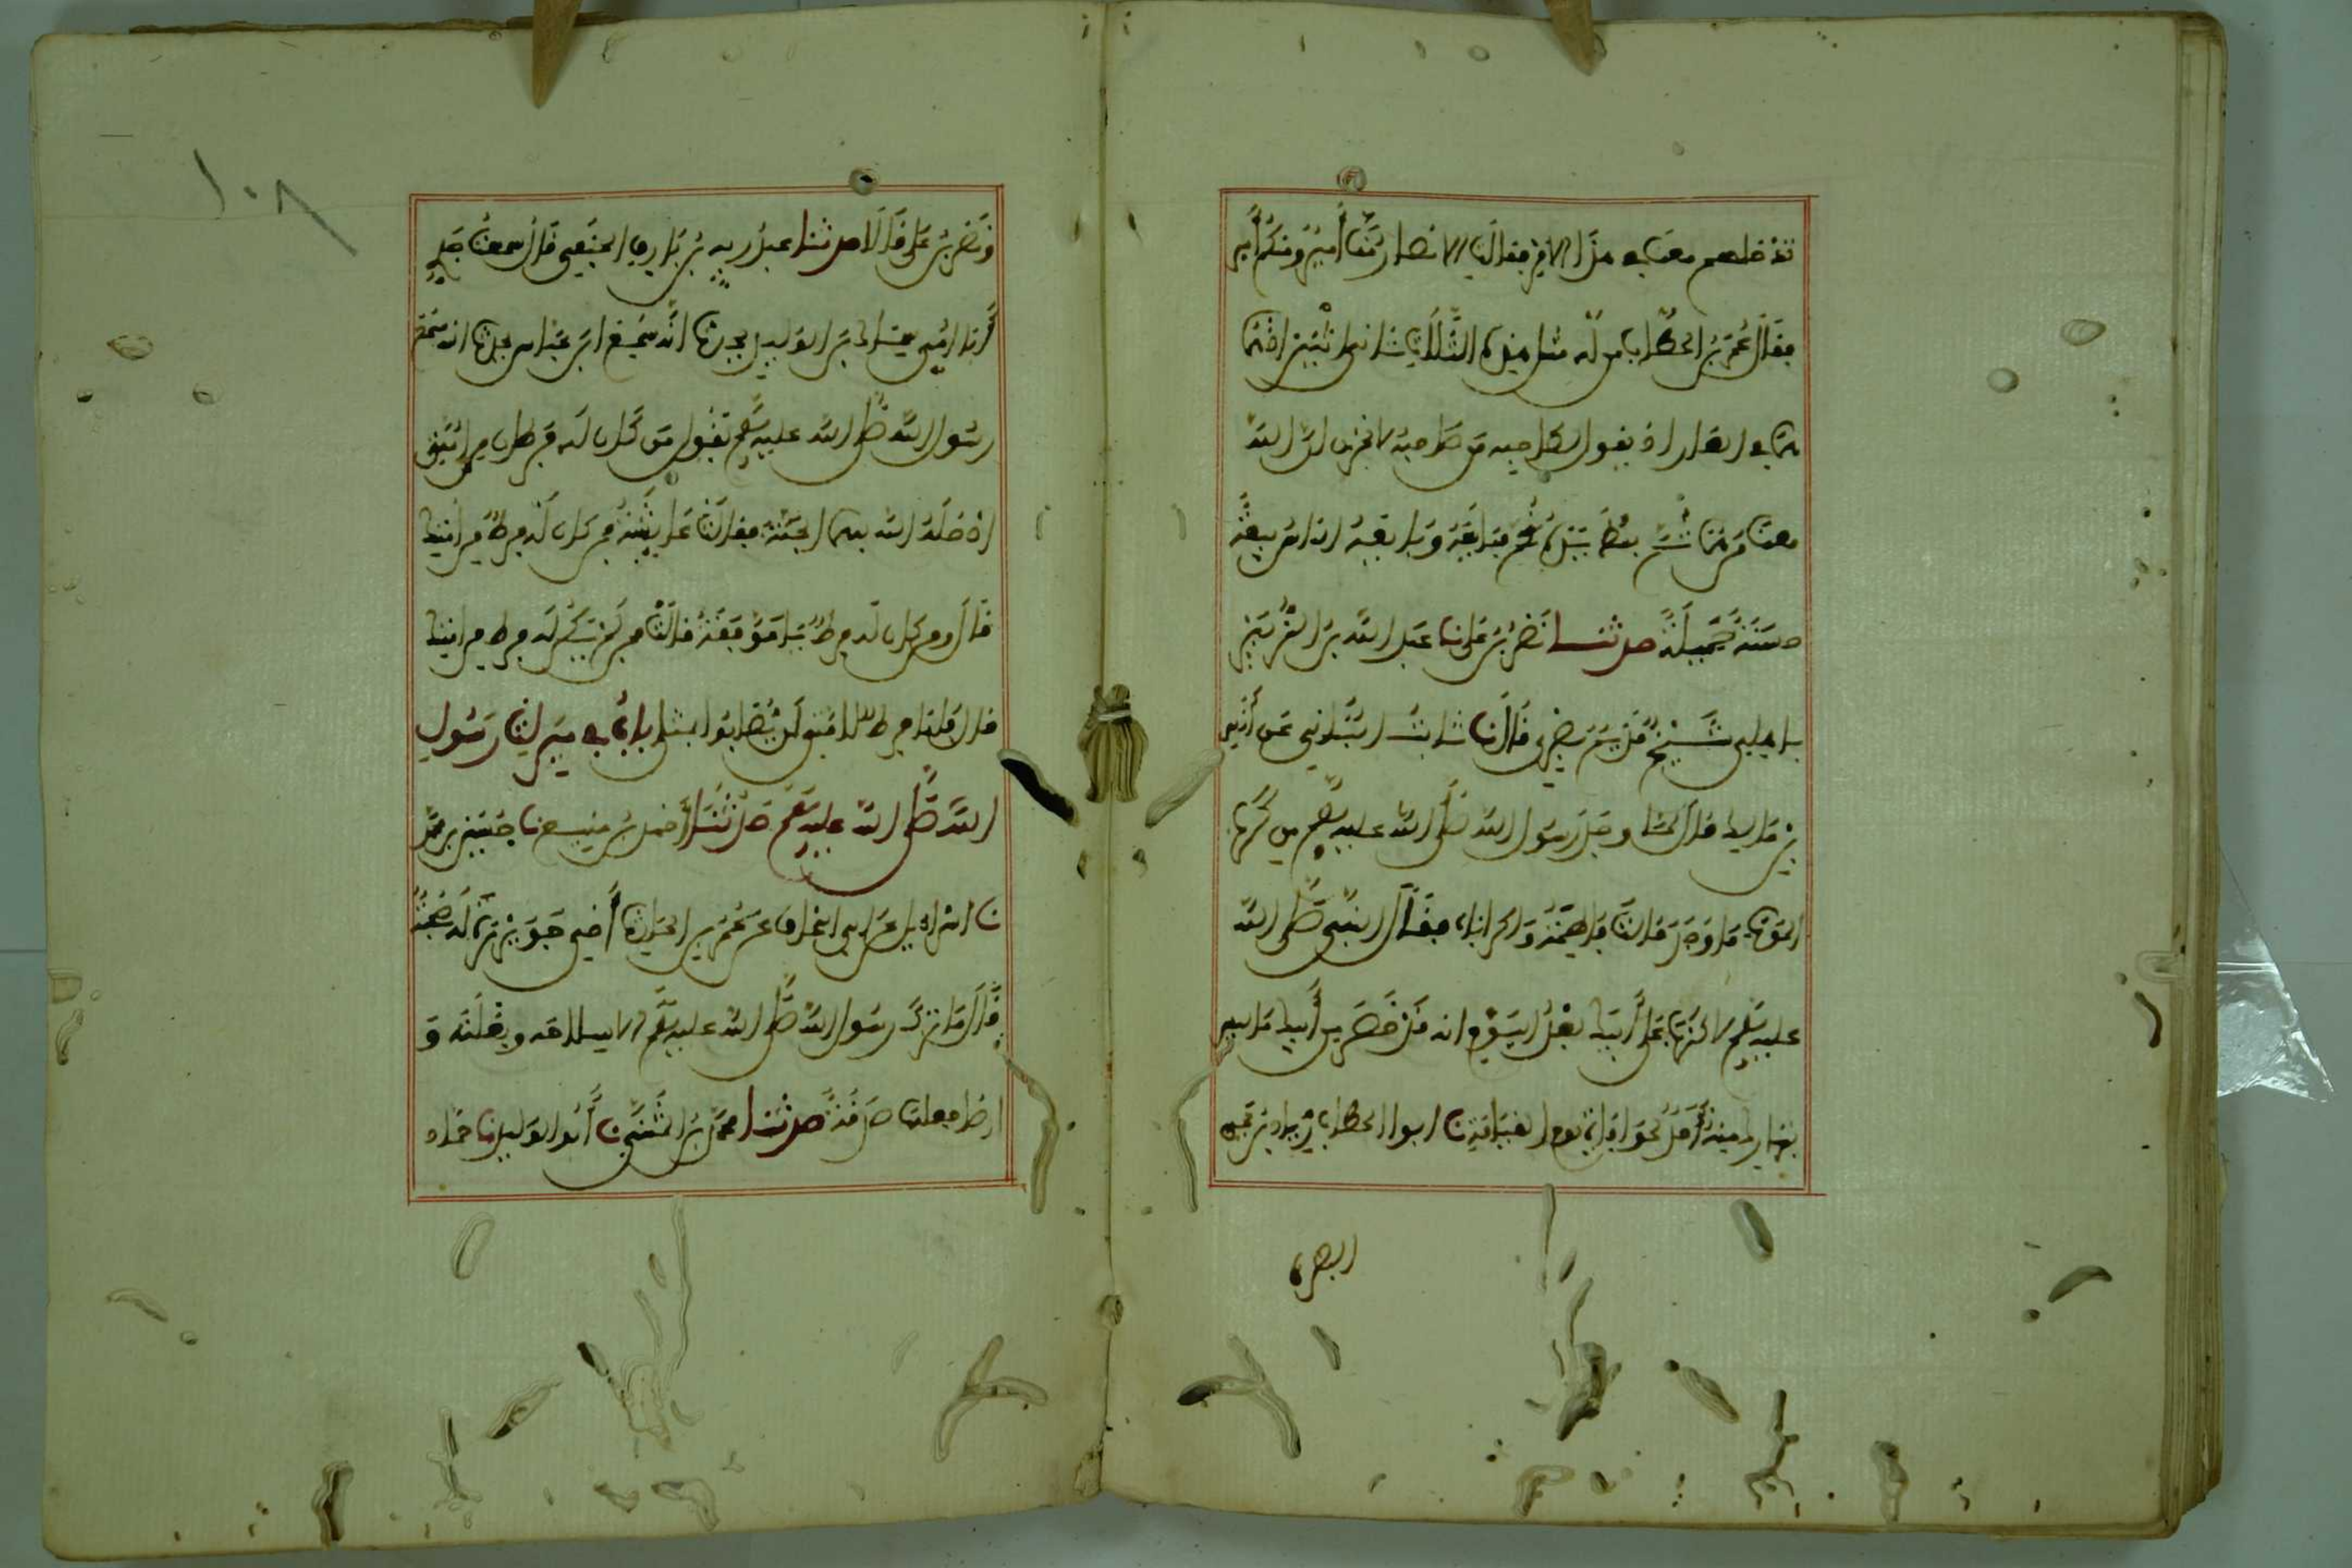 ندخلهم معنا في هذا الامر فقالت الانصار منا أمير ومنكم أمير
فقال عمر بن الخطاب من له مثل هذه الثلاث ثاني اثنين اذ هما
هما في الغار اذ يقول لصاحبه من صاحبه لا تحزن ان الله
معنا من هما ثم بسط يده فبايعه وبايعه الناس بيعة
حسنة جميلة حدثنا نصر بن علي نا عبد الله بن الزبير
باهلي شيخ قديم بصري قال نا ثابت البناني عن أنس
بن مالك قال لما وجد رسول الله صلى الله عليه وسلم من كرب
الموت ما وجد قالت فاطمة واكرباه فقال النبي صلى الله
عليه وسلم لا كرب على أبيك بعد اليوم انه قد حضر من أبيك ما ليس
بتارك منه أحدا الموافاة يوم القيامة نا ابوا الخطاب زياد بن يحيى
البصري
١٠٨
ونصر بن علي قالا حدثنا عبد ربه بن بارق الحنفي قال سمعت جدي
أبا امي سماك بن الوليد يحدث انه سمع ابن عباس يحدث انه سمع
رسول الله صلى الله عليه وسلم يقول من كان له فرطان من امتي
ادخله الله بهما الجنة فقالت عائشة فمن كان له فرط من امتك
قال ومن كان له فرط يا موفقة قالت فمن لم يكن له فرط من امتك
قال فانا فرط لامتي لن يصابوا بمثلي باب في ميراث رسول
الله صلى الله عليه وسلم حدثنا أحمد بن منيع نا حسين بن محمد
نا اسرائيل عن ابي اسحاق عن عمرو بن الحارث أخي جويرية له صحبة
قال ما ترك رسول الله صلى الله عليه وسلم الا سلاحه وبغلته و
ارضا جعلها صدقة حدثنا محمد بن المثنى نا أبو الوليد نا حماد